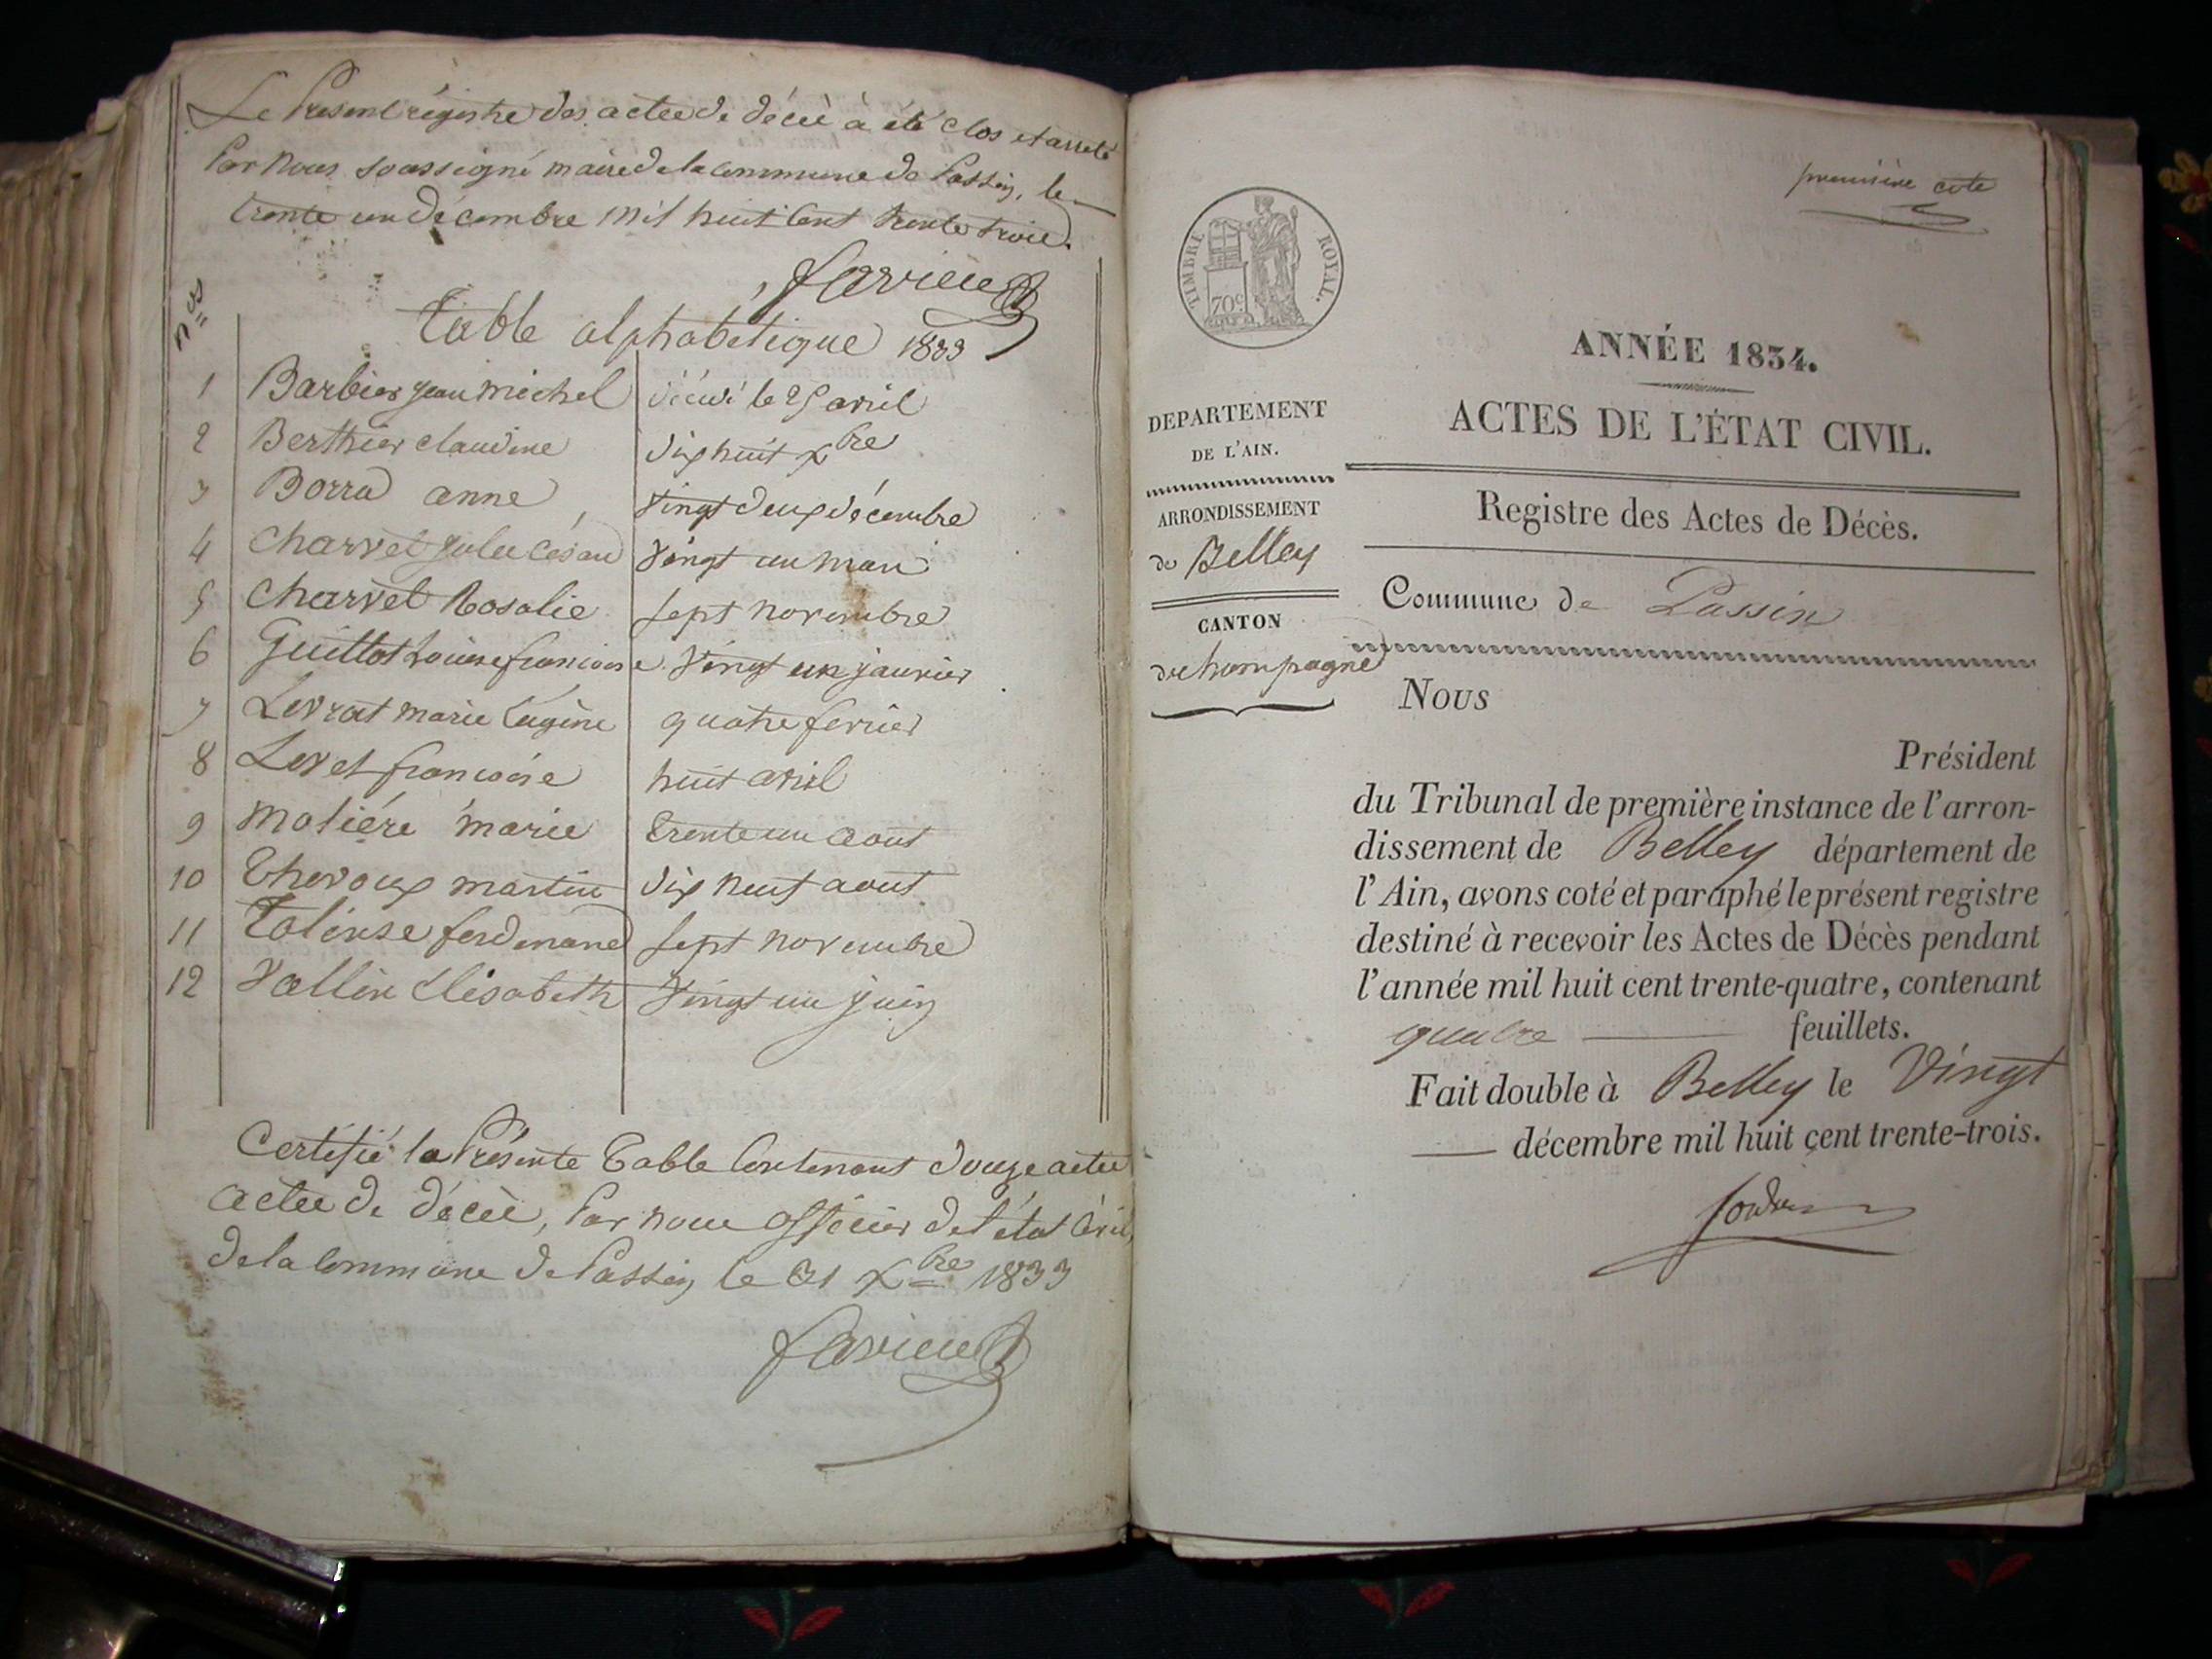 Le Présent régistre des actes de décès à été clos et arreté
Par nous soussigné maire de la commune de Passin, le
trente un décembre mil huit cent trente trois.
Nos
Table alphabétique 1833
1 Barbier Jean Michel décédé le 25 avril
2 Berthier claudine dix huit xbre
3 Borra anne vingt deux décembre
4 Charvet Jules César vingt un mars
5 Charvet Rosalie sept novembre
6 Guillot Louise francoise vingt un janvier
7 Levrat marie Eugène quatre fevrier
8 Levet francoise huit avril
9 Matiére marie trente un aout
10 martin dix neuf aout
11 ferdinand sept novembre
12 Vallin Elisabeth vingt un juin
Certifié la Présente Table Contenant douze actes
actes de décès, Par nous officier de l'état Civil
de la Commune de Passin le 31 xbre 1833
première cote
TIMBRE ROYAL.
70c
ANNÉE 1834.
ACTES DE L'ÉTAT CIVIL.
Registre des Actes de Décès.
Commune de Passin
DEPARTEMENT
DE L'AIN.
ARRONDISSEMENT
de Belley
CANTON
de Champagne
Nous
Président
du Tribunal de première instance de l'arron-
dissement de Belley département de
l'Ain, avons coté et paraphé le présent registre
destiné à recevoir les Actes de Décès pendant
l'année mil huit cent trente-quatre, contenant
quatre feuillets.
Fait double à Belley le Vingt
décembre mil huit cent trente-trois.